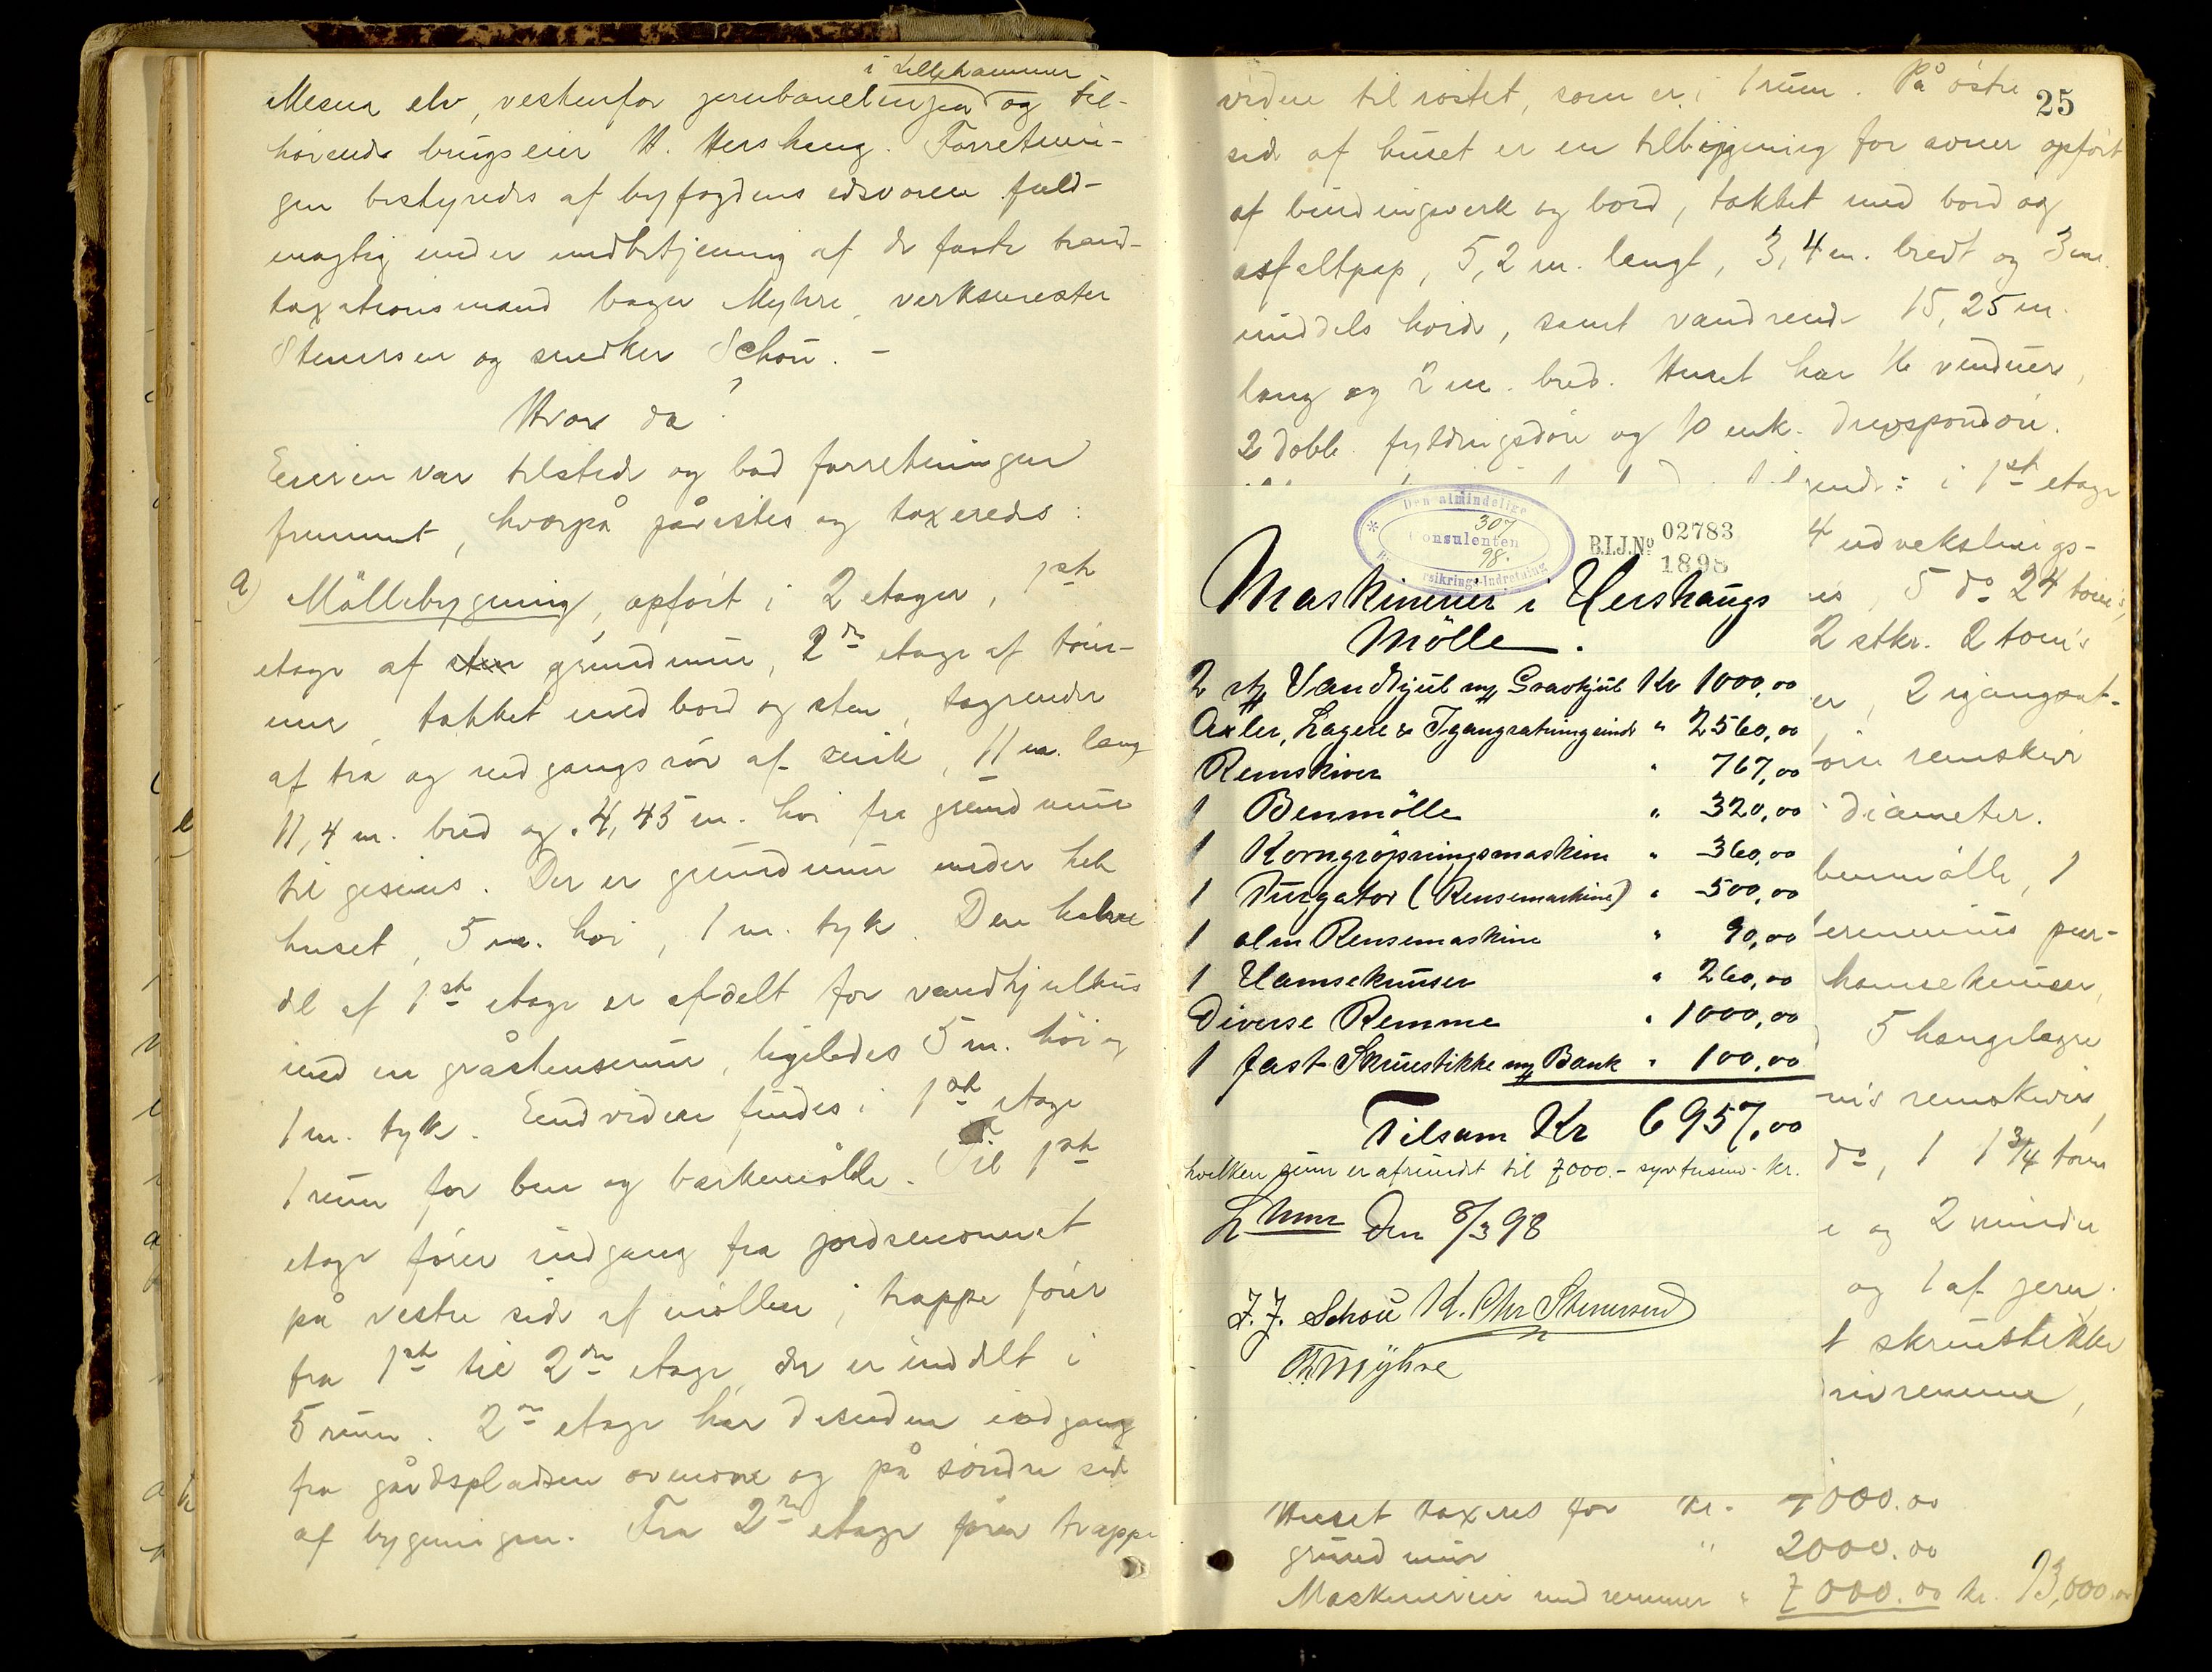 i Lillehammer
Mesna elv, vestenfor jernbanelinjen og til-
hörende brugseier H. Hershaug. Forretnin-
gen bestyredes af byfogdens edsvorne fuld-
mægtig under medbetjening af de faste brand-
taxationsmænd bager Myhre, verksmester
Stenersen og snedker Schou. -
Hvor da!
Eieren var tilstede og bad forretningen
fremmet, hvorpå påvistes og taxeredes:
a) Möllebygning, opfört i 2 etager, 1ste
etage af sten grundmur, 2de etage af töm-
mer, takket med bord og sten, tagrender
af træ og nedgangsrör af zink, 11 m. lang
11,4 m. bred og 4,45 m. höi fra grundmur
til gesims. Der er grundmur under hele
huset, 5 m. höi, 1 m. tyk. Den halve
del af 1ste etage er afdelt for vandhjulhus
med en gråstensmur, ligeledes 5 m. höi og
1 m. tyk. Endvidere findes i 1ste etage
1 rum for ben og barkemölle. Til 1ste
etage förer indgang fra jordsmonnet
på vestre side af möllen; trappe förer
fra 1ste til 2den etage, der er inddelt i
5 rum. 2den etage har desuden indgang
fra gårdspladsen ovenom og på söndre side
af bygningen. Fra 2den etage förer trappe
25
videre til röstet, som er i 1 rum. På östre
side af huset er en tilbygning for opfört
af bindingsverk og bord, takket med bord og
asfaltpap, 5,2 m. langt, 3,4 m. bredt og 3 m.
middels höide, samt vandrende 15,25 m.
lang og 2 m. bred. Huset har 16 vinduer,
2 dobb. fyldingsdöre og 10 enk. döre.
ende: i 1ste etage
4 udvekslings-
5 do 24 toms,
2 stkr. 2 toms
er, 2 igangsat-
remskive
diameter.
benmölle, 1
pur-
hamseknuser,
5 hængelagre
remskive,
do, 1 1 3/4 tom
e og 2 mindre
og 1 af jern.
1 skruestikke
drivremme,
Den almindelige
307
Consulenten
98.
Forsikrings-Indretning
B.I.J.No 02783
1898
Maskinerier i Hershaugs
Mölle.
2 stk Vandhjul m/ Gravhjul Kr 1000,00
Axler, Lagere & Igangsætning " 2560,00
Remskiver " 767,00
1 Benmölle " 320,00
1 Korngröpningsmaskine " 360,00
1 Purgator (Rensemaskine) " 500,00
1 alm Rensemaskine " 90,00
1 Hamseknuser " 260,00
Diverse Remme " 1000,00
1 fast Skruestikke m/ Bænk " 100,00
Tilsam Kr 6957,00
hvilken sum er afrundet til 7000.- syvtusind - kr.
Lhmr den 8/3 98
J. J. Schou K. Chr Stenersen
Th Myhre
Huset taxeres for kr. 4000.00
grundmur " 2000.00
Maskinerier med remmer " 7000.00 kr. 13,000.00